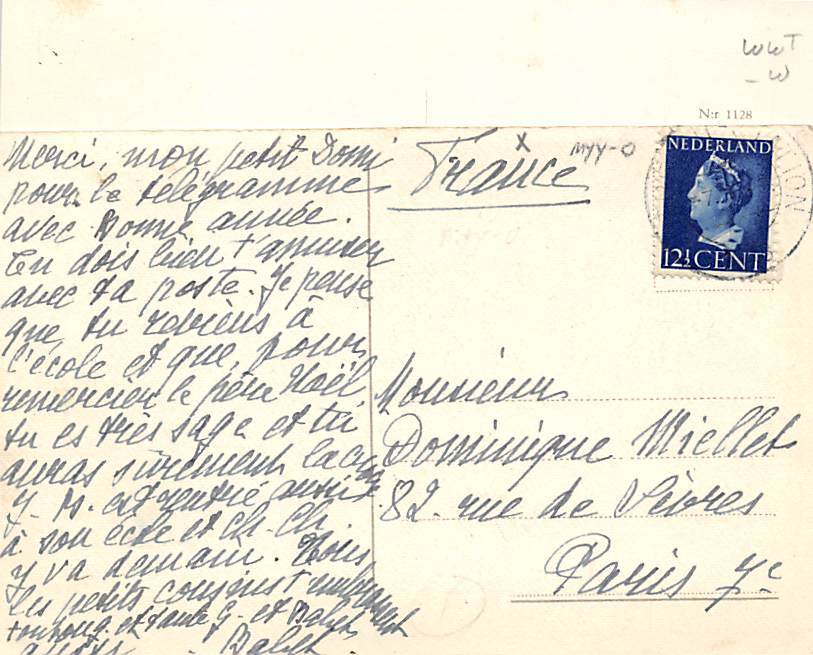 WWT
-W
N:r 1128
Merci, mon petit Domi
pour le télégramme
avec Bonne année.
Tu dois bien t'amuser
avec ta poste. Je pense
que, tu reviens à
l'école et que, pour
remercier le père Noël,
tu es très sage et tu
auras sûrement la croix
J. M. est rentré aussi
à son école et Ch. Ch.
y va demain. Tous
les petits cousins t'embrassent
et tante G. et Babet
Babet
France
x
MYY-O
NEDERLAND
12½ CENT
Monsieur
Dominique Miellet
82 rue de Sèvres
Paris 7e